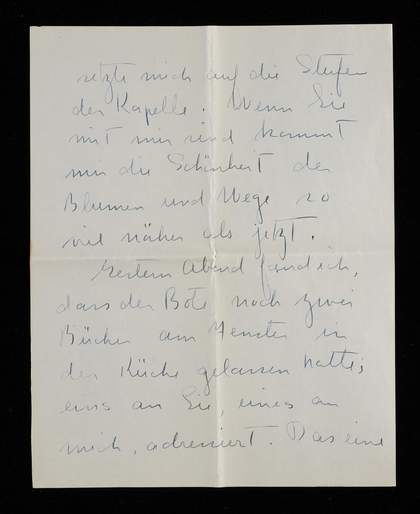 setzte mich auf die Stufen
der Kapelle. Wenn Sie
mit mir sind kommt
mir die Schönheit der
Blumen und Wege so
viel näher als jetzt.
Gestern Abend fand ich,
dass der Bote noch zwei
Bücher am Fenster in
der Küche gelassen hatte;
eins an Sie, eines an
mich, adressiert. Das eine